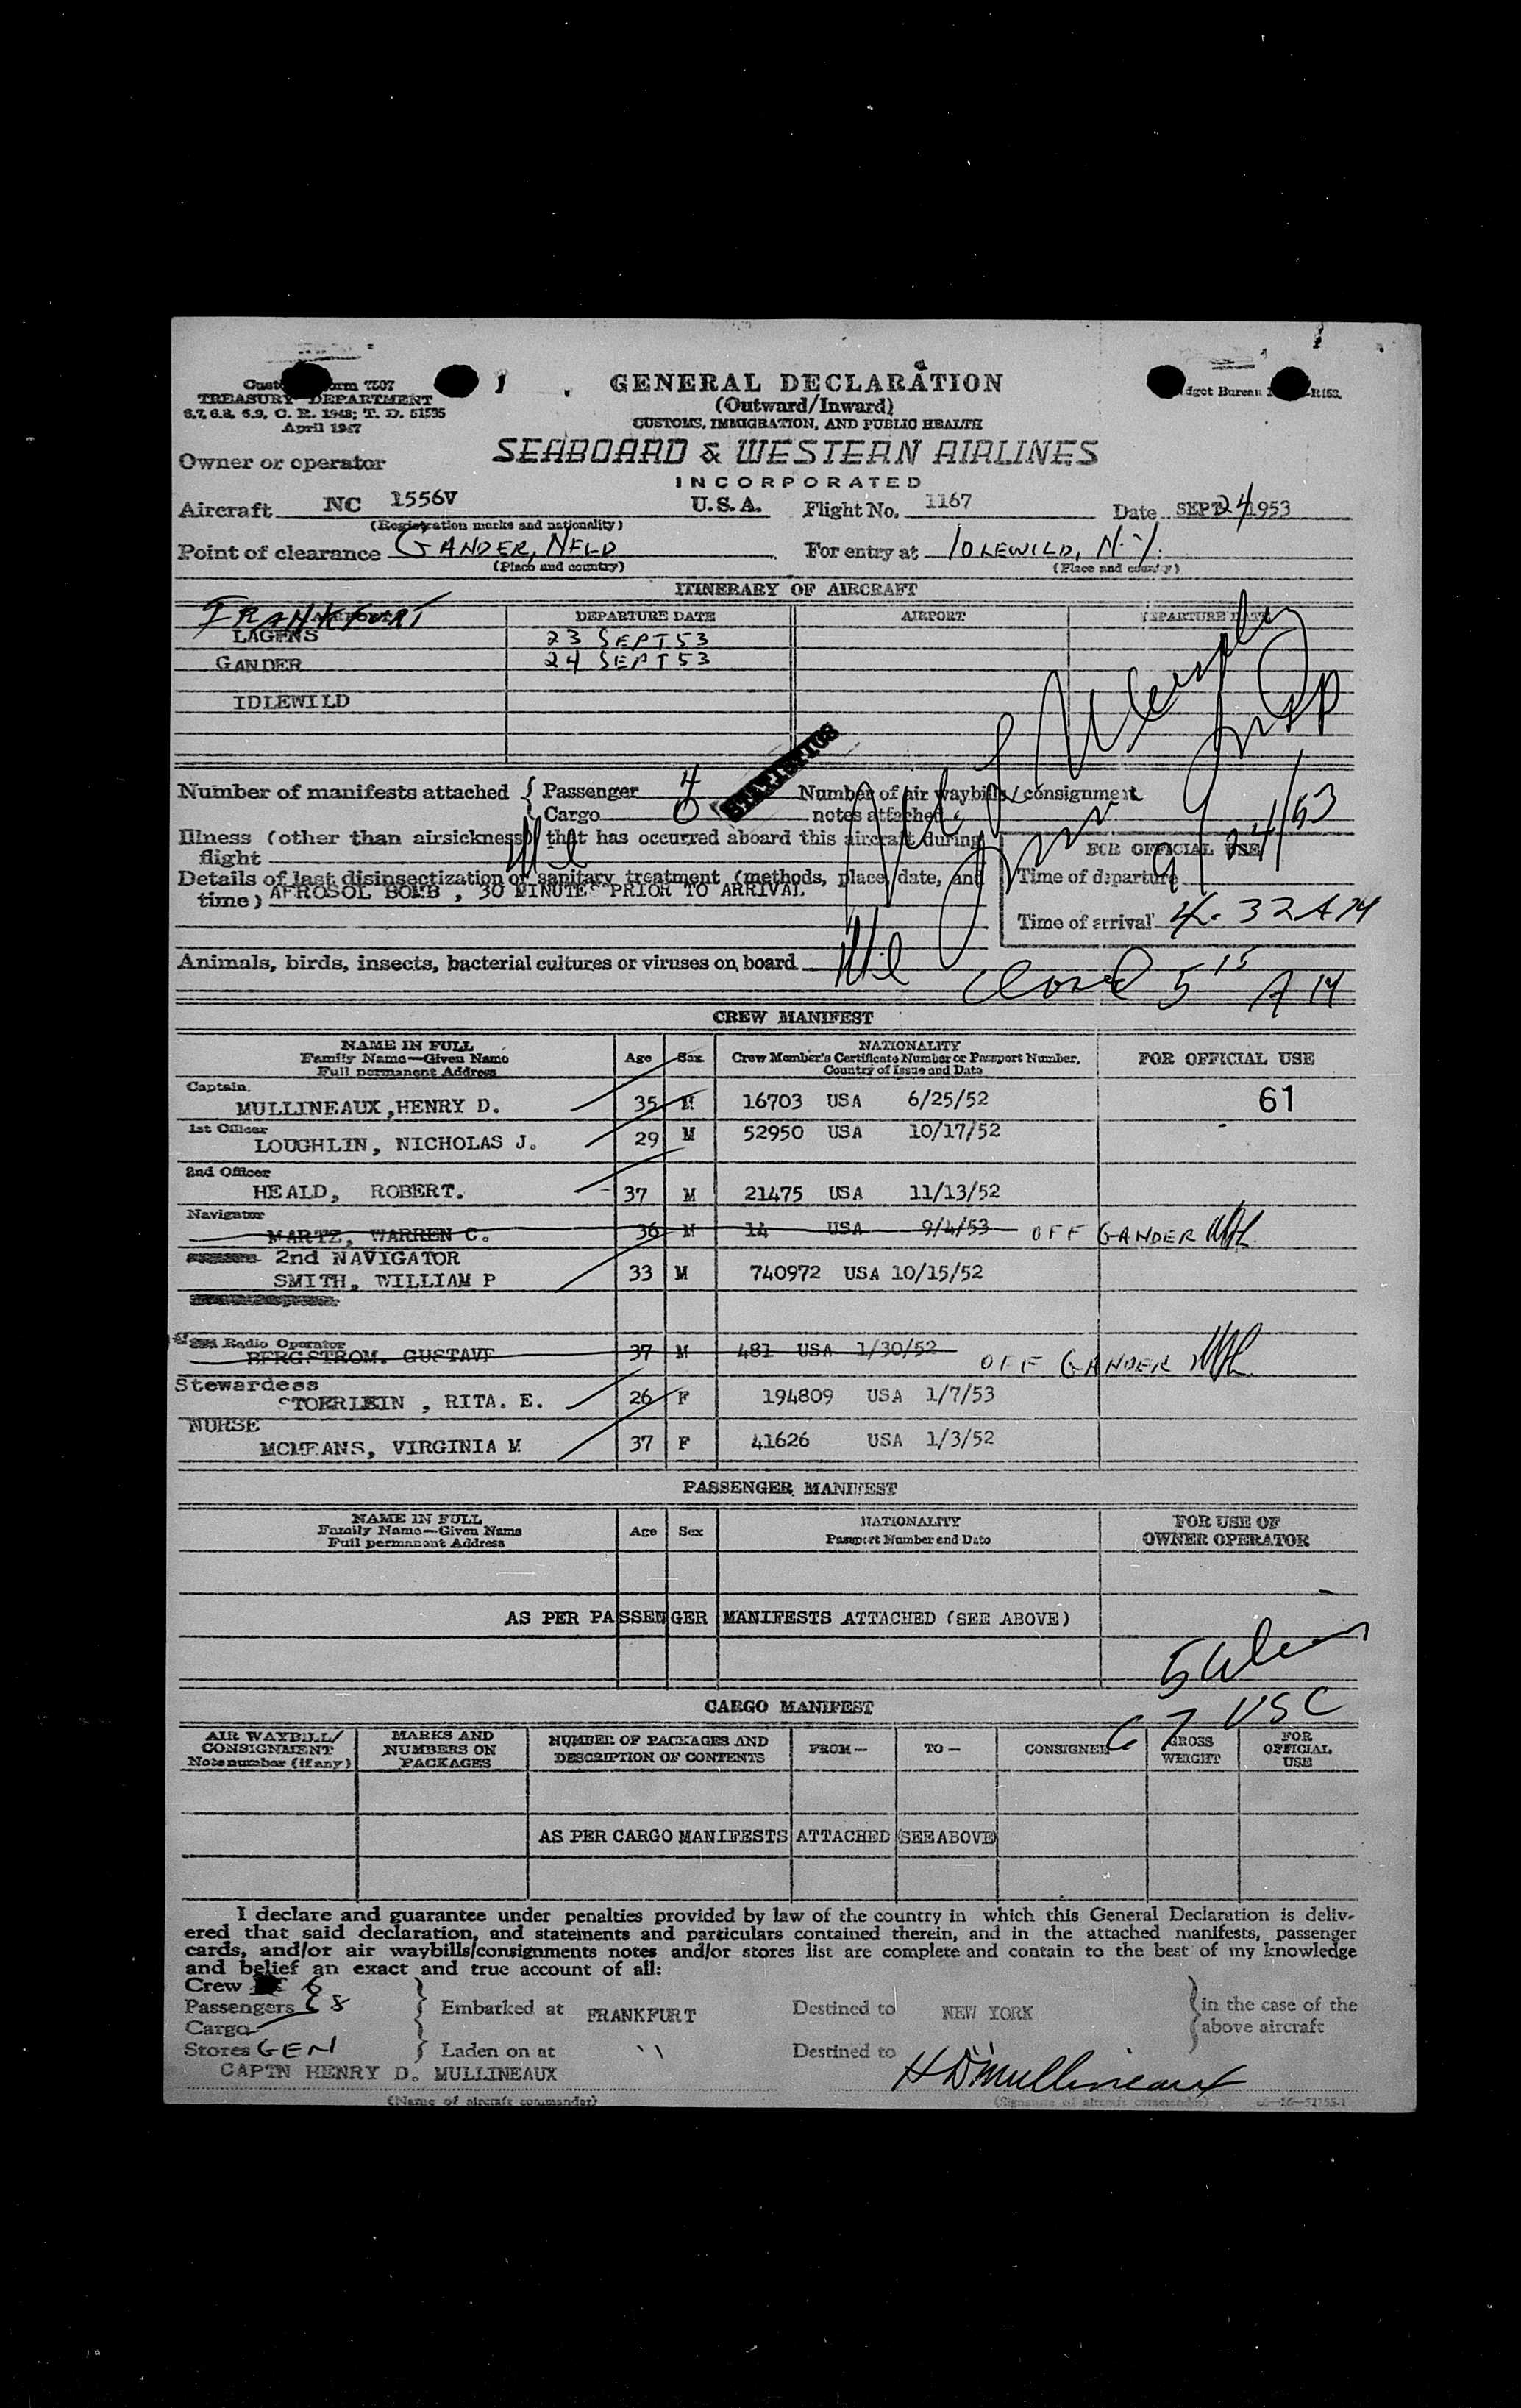 GENERAL DECLARATION
(Outward/Inward)
CUSTOMS, IMMIGRATION, AND PUBLIC HEALTH
TREASURY DEPARTMENT
6.7, 6.8, 6.9, C. R. 1948; T. D. 51535
April 1947
Owner or operator SEABOARD & WESTERN AIRLINES
INCORPORATED
Aircraft NC 1556V U.S.A. Flight No. 1167 Date SEPT 24 1953
(Registration marks and nationality)
Point of clearance GANDER, NFLD For entry at IDLEWILD, N.Y.
(Place and country) (Place and country)
ITINERARY OF AIRCRAFT
FRANKFURT DEPARTURE DATE AIRPORT DEPARTURE DATE
LAGENS 23 SEPT 53
GANDER 24 SEPT 53
IDLEWILD
STATISTICS
Number of manifests attached { Passenger 4 Number of air waybills/consignment
Cargo 0 notes attached
Illness (other than airsickness) that has occurred aboard this aircraft during
flight Nil
FOR OFFICIAL USE
9/24/53
Details of last disinsectization or sanitary treatment (methods, place, date, and
time) AEROSOL BOMB, 30 MINUTES PRIOR TO ARRIVAL
Time of departure
Time of arrival 4.32 AM
Animals, birds, insects, bacterial cultures or viruses on board Nil
Closed 5 15 AM
CREW MANIFEST
NAME IN FULL
Family Name—Given Name
Full permanent Address
Age Sex
NATIONALITY
Crew Member's Certificate Number or Passport Number,
Country of Issue and Date
FOR OFFICIAL USE
Captain.
MULLINEAUX, HENRY D. 35 M 16703 USA 6/25/52 61
1st Officer
LOUGHLIN, NICHOLAS J. 29 M 52950 USA 10/17/52
2nd Officer
HEALD, ROBERT. 37 M 21475 USA 11/13/52
Navigator
MARTZ, WARREN C. 36 M 14 USA 9/4/53 OFF GANDER
2nd NAVIGATOR
SMITH, WILLIAM P 33 M 740972 USA 10/15/52
Radio Operator
BERGSTROM. GUSTAVE 37 M 481 USA 1/30/52 OFF GANDER
Stewardess
STOERLEIN, RITA. E. 26 F 194809 USA 1/7/53
NURSE
MCMEANS, VIRGINIA M 37 F 41626 USA 1/3/52
PASSENGER MANIFEST
NAME IN FULL
Family Name—Given Name
Full permanent Address
Age Sex
NATIONALITY
Passport Number and Date
FOR USE OF
OWNER OPERATOR
AS PER PASSENGER MANIFESTS ATTACHED (SEE ABOVE)
5
USC
CARGO MANIFEST
AIR WAYBILL/
CONSIGNMENT
Note number (if any)
MARKS AND
NUMBERS ON
PACKAGES
NUMBER OF PACKAGES AND
DESCRIPTION OF CONTENTS
FROM—
TO—
CONSIGNEE
GROSS
WEIGHT
FOR
OFFICIAL
USE
AS PER CARGO MANIFESTS ATTACHED (SEE ABOVE)
I declare and guarantee under penalties provided by law of the country in which this General Declaration is deliv-
ered that said declaration, and statements and particulars contained therein, and in the attached manifests, passenger
cards, and/or air waybills/consignments notes and/or stores list are complete and contain to the best of my knowledge
and belief an exact and true account of all:
Crew 6
Passengers 68 Embarked at FRANKFURT Destined to NEW YORK in the case of the
Cargo above aircraft
Stores GEN Laden on at " Destined to "
CAPTN HENRY D. MULLINEAUX HDMullineaux
(Name of aircraft commander) (Signature of aircraft commander)